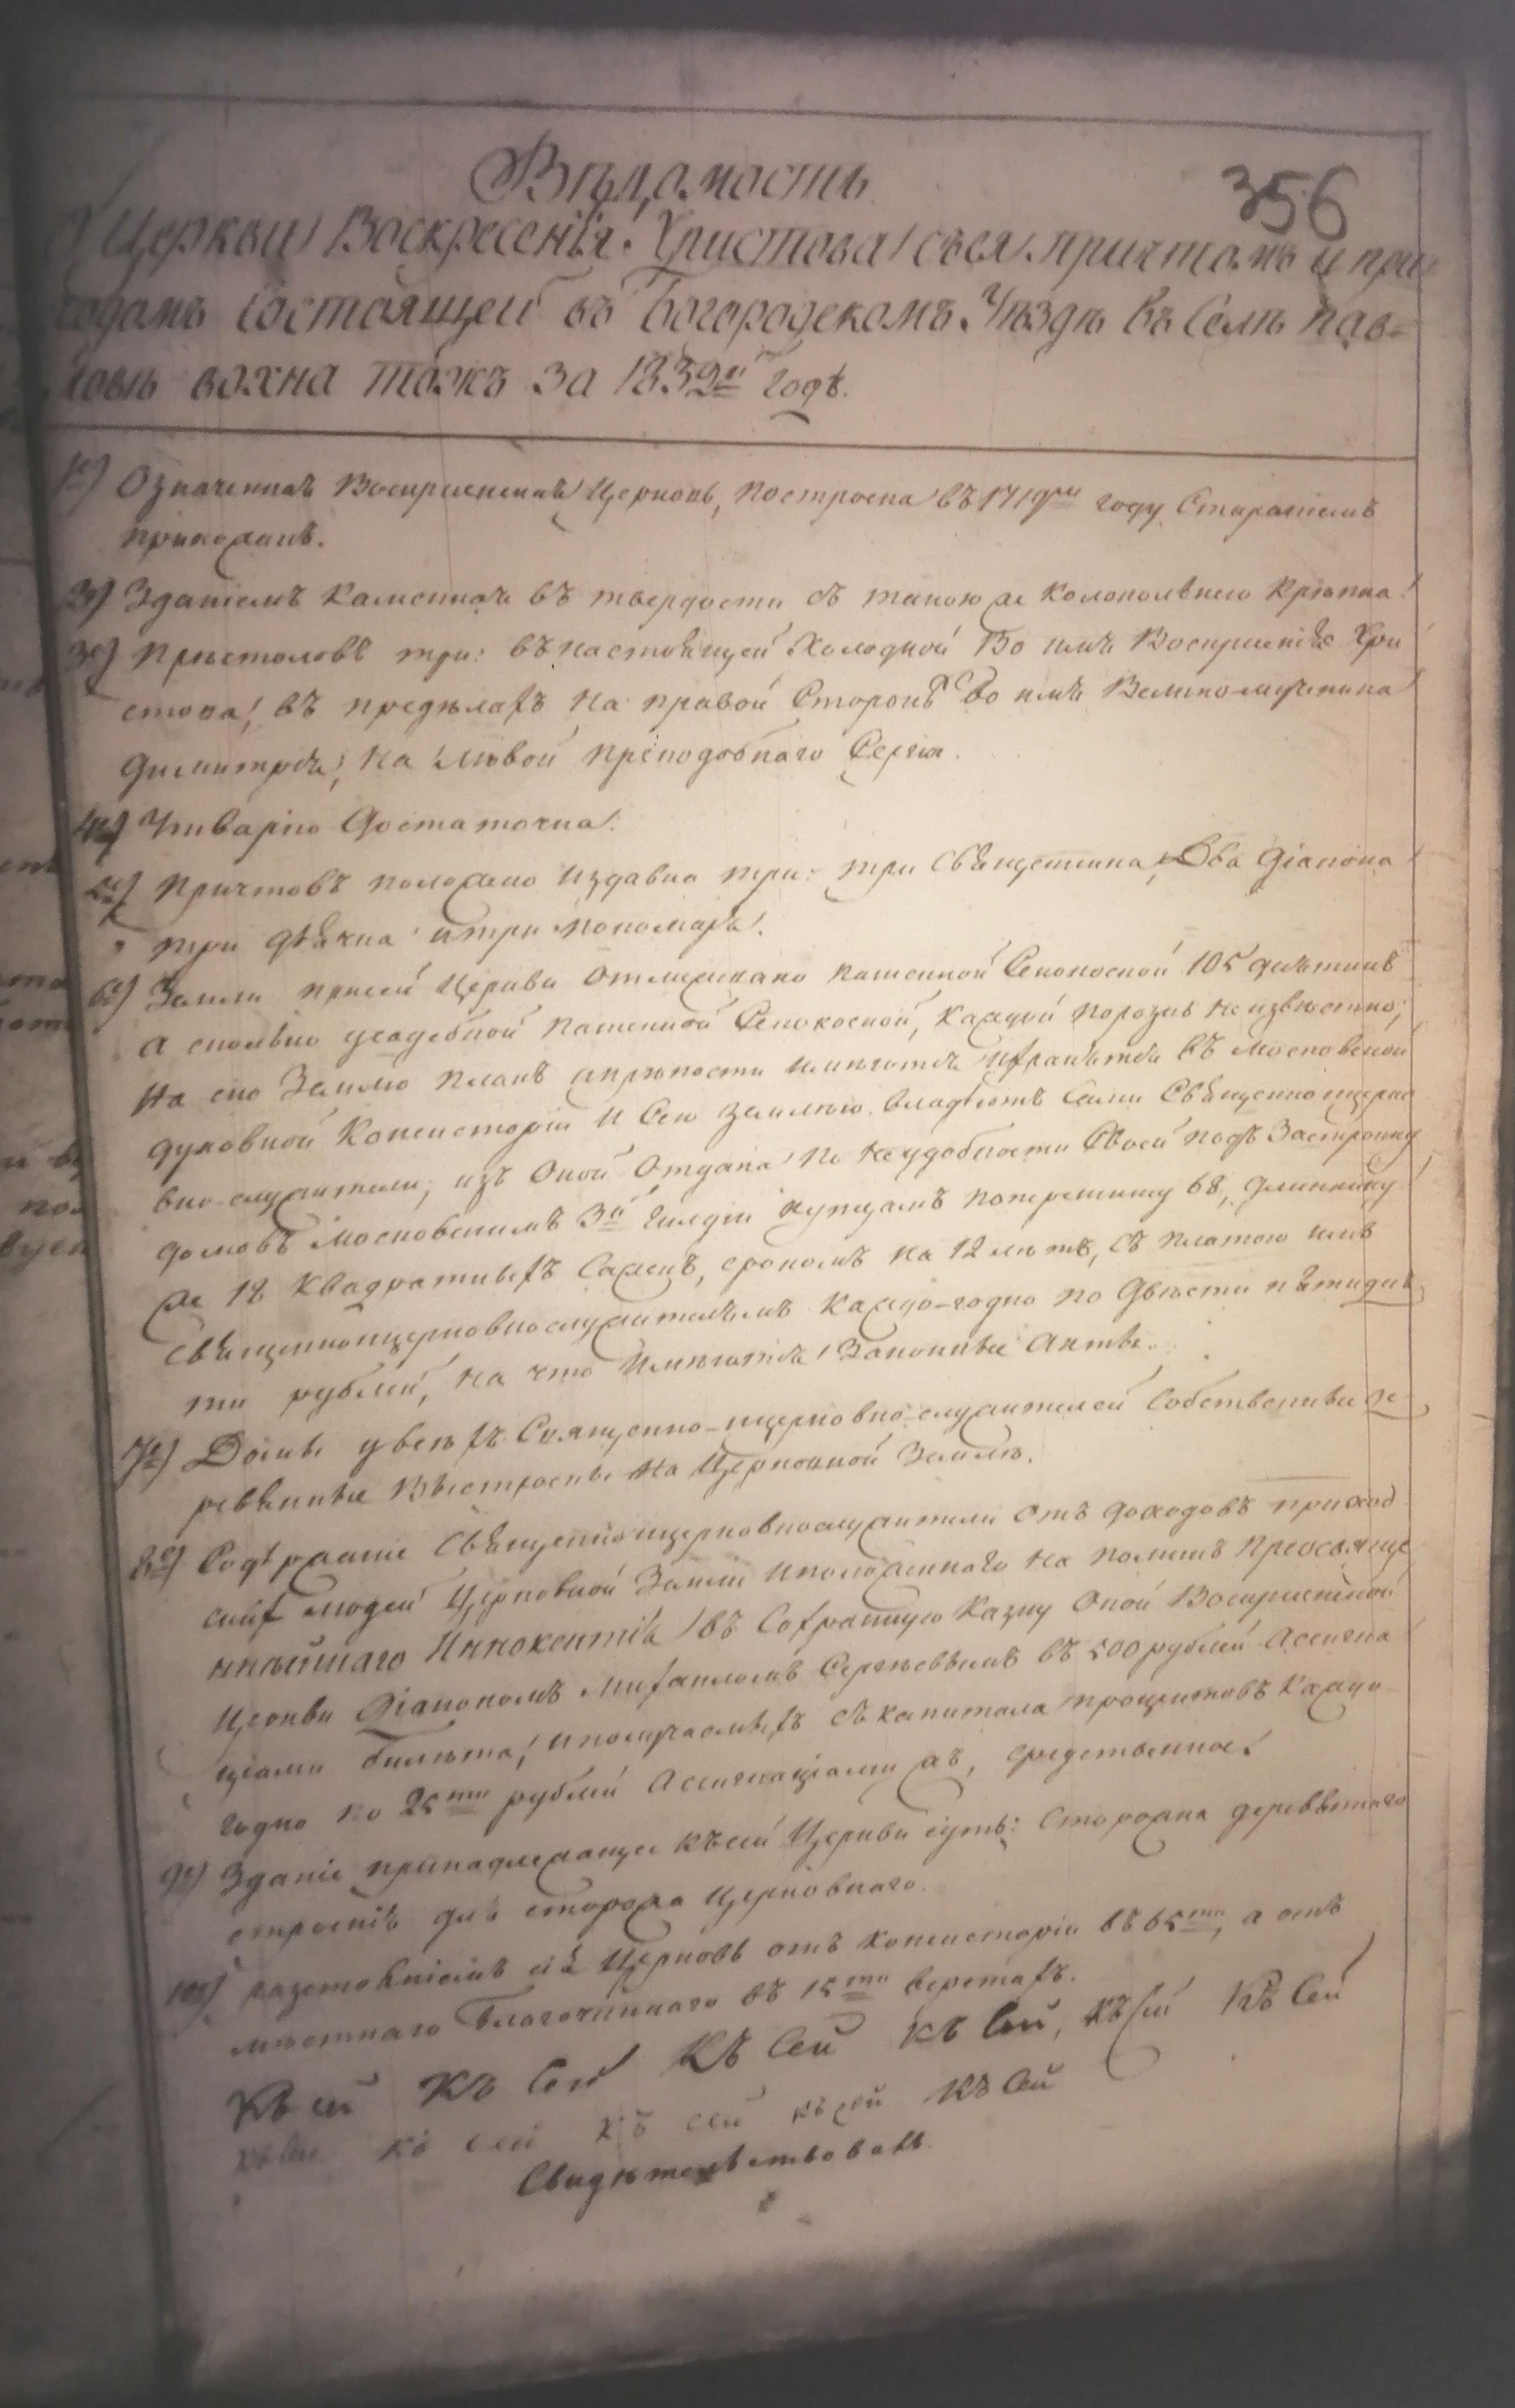 Вѣдомость
356
О Церкви Воскресенія Христова съ ея причтомъ и при
ходомъ Состоящей въ Богородскомъ Уѣздѣ въ Селѣ пав=
ловѣ вохна тожъ за 1839й годъ.
1е) Означенная Воскресенская Церковь, построена въ 1719м году Стараніемъ
прихожанъ.
2е) Зданіемъ Каменная въ твердости съ таковою же Колокольнею Крѣпка
3е) Престоловъ три: въ настоящей Холодной Во имя Воскресенія Хри
стова, въ предѣлахъ на правой Сторонѣ Во имя Великомученика
Димитрія, на лѣвой преподобнаго Сергія.
4е) Утварію Достаточна.
5е) Причтовъ положено издавна три: три Священника, Два Діакона
три дьячка и три пономаря.
6е) Земли при сей Церкви отмежевано пашенной Сенокосной 105 десятинъ
а сколько усадебной пашенной Сенокосной, Каждой порознь неизвѣстно;
на сію Землю планъ и крѣпости имѣются и хранятся въ Московской
духовной Консисторіи и Сею землею владѣютъ Сами Священно и церко
вно-служители; изъ Оной Отдана по неудобности Своей подъ Застройку
домовъ Московскимъ 3й Гилдіи купцамъ поперешнику 68, длиннику
же 18 Квадратныхъ Саженъ, срокомъ на 12 лѣтъ, съ платою имъ
Священноцерковнослужителямъ Каждо-годно по Двѣсти пятидеся
ти рублей, на что Имѣются Законные Акты.
7е) Домы у всѣхъ Священно-церковно-служителей Собственные де
ревянные Выстроены на Церковной Землѣ.
8е) Содержаніе Священноцерковнослужители Отъ доходовъ приход
скихъ людей Церковной Земли и положеннаго на поминъ Преосвяще
ннѣйшаго Иннокентія въ Сохранную Казну Оной Воскресенской
Церкви Діакономъ Михаиломъ Сергѣевымъ въ 500 рублей Ассигна
ціями билета, и получаемыхъ съ капитала процентовъ Каждо
годно по 25ти рублей Ассигнаціями, средственное.
9е) Зданіе принадлежащее къ сей Церкви суть: Сторожка деревяннаго
строенія для сторожа Церковнаго.
10е) разстояніемъ сія Церковь отъ Консисторіи въ 65ти, а отъ
мѣстнаго Благочиннаго въ 15ти верстахъ.
Къ сей Къ Сей Къ Сей Къ Сей, Къ Сей Къ Сей
Къ Сей Къ сей Къ сей Къ сей Къ Сей
Свидѣтельствовалъ